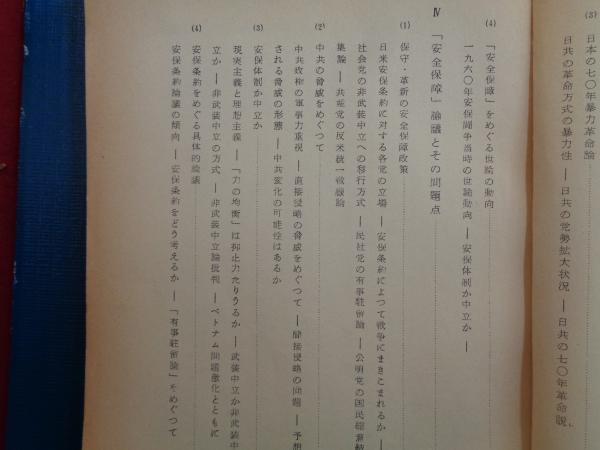 (3)
日本の七〇年暴力革命論
日共の革命方式の暴力性 ― 日共の党勢拡大状況 ― 日共の七〇年革命説、
(4)
「安全保障」をめぐる世論の動向
一九六〇年安保闘争当時の世論動向 ― 安保体制か中立か ―
Ⅳ 「安全保障」論議とその問題点
(1)
保守・革新の安全保障政策
日米安保条約に対する各党の立場 ― 安保条約によつて戦争にまきこまれるか ―
社会党の非武装中立への移行方式 ― 民社党の有事駐留論 ― 公明党の国民総意結
集論 ― 共産党の反米統一戦線論
(2)
中共の脅威をめぐつて
中共政権の軍事力重視 ― 直接侵略の脅威をめぐつて ― 間接侵略の問題 ― 予想
される脅威の形態 ― 中共変化の可能性はあるか
(3)
安保体制か中立か
現実主義と理想主義 ― 「力の均衡」は抑止力たりうるか ― 武装中立か非武装中
立か ― 非武装中立の方式 ― 非武装中立論批判 ― ベトナム問題激化とともに
(4)
安保条約をめぐる具体的論議
安保条約論議の傾向 ― 安保条約をどう考えるか ― 「有事駐留論」をめぐつて